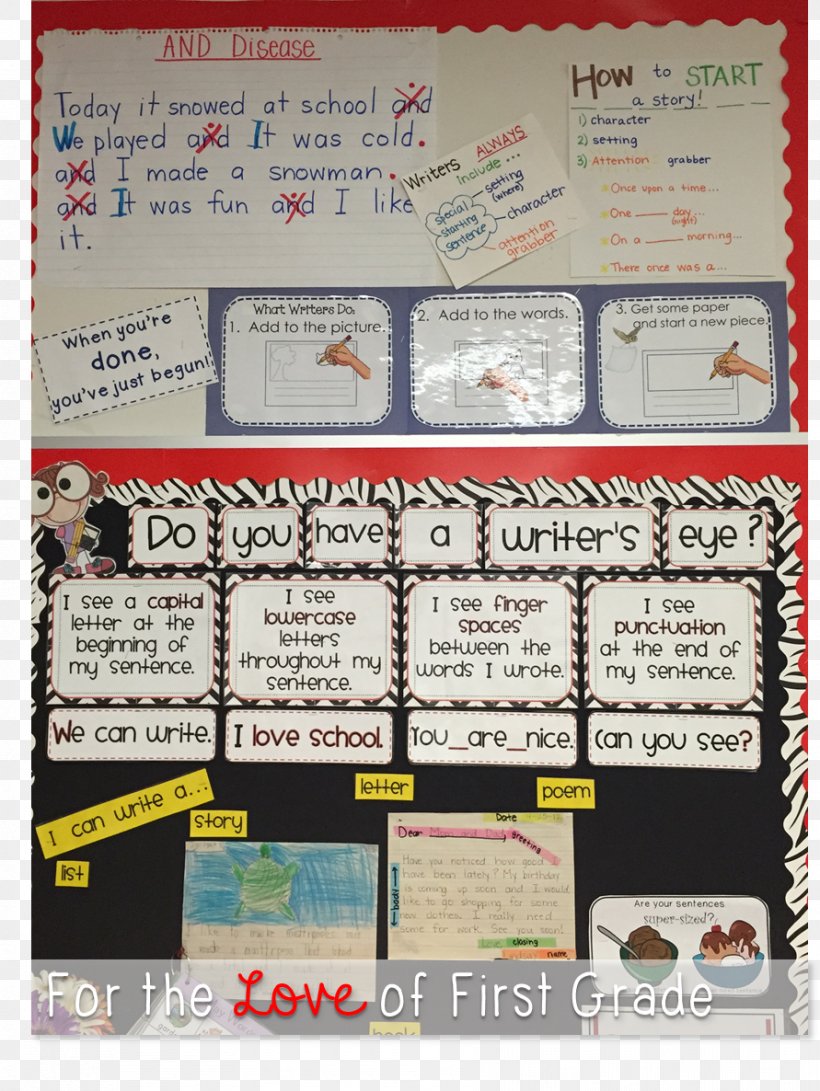 AND Disease
Today it snowed at school and
We played and It was cold.
and I made a snowman.
and It was fun and I like
it.
Writers ALWAYS
include ...
special
starting
sentence
setting
(where)
character
attention
grabber
HOW to START
a story!
1) character
2) setting
3) Attention grabber
Once upon a time...
One ____ day...
(night)
On a ____ morning...
There once was a...
When you're
done,
you've just begun!
What Writers Do:
1. Add to the picture.
2. Add to the words.
3. Get some paper
and start a new piece.
Do you have a writer's eye?
I see a capital
letter at the
beginning of
my sentence.
I see
lowercase
letters
throughout my
sentence.
I see finger
spaces
between the
words I wrote.
I see
punctuation
at the end of
my sentence.
We can write.
I love school.
You_are_nice.
Can you see?
I can write a...
letter
poem
story
list
Date
Dear Mom and Dad,
greeting
Have you noticed how good I
have been lately? My birthday
is coming up soon and I would
like to go shopping for some
new clothes. I really need
some for work. See you soon!
body
Love closing
name
I like to make
Are your sentences
super-sized?
For the Love of First Grade
book